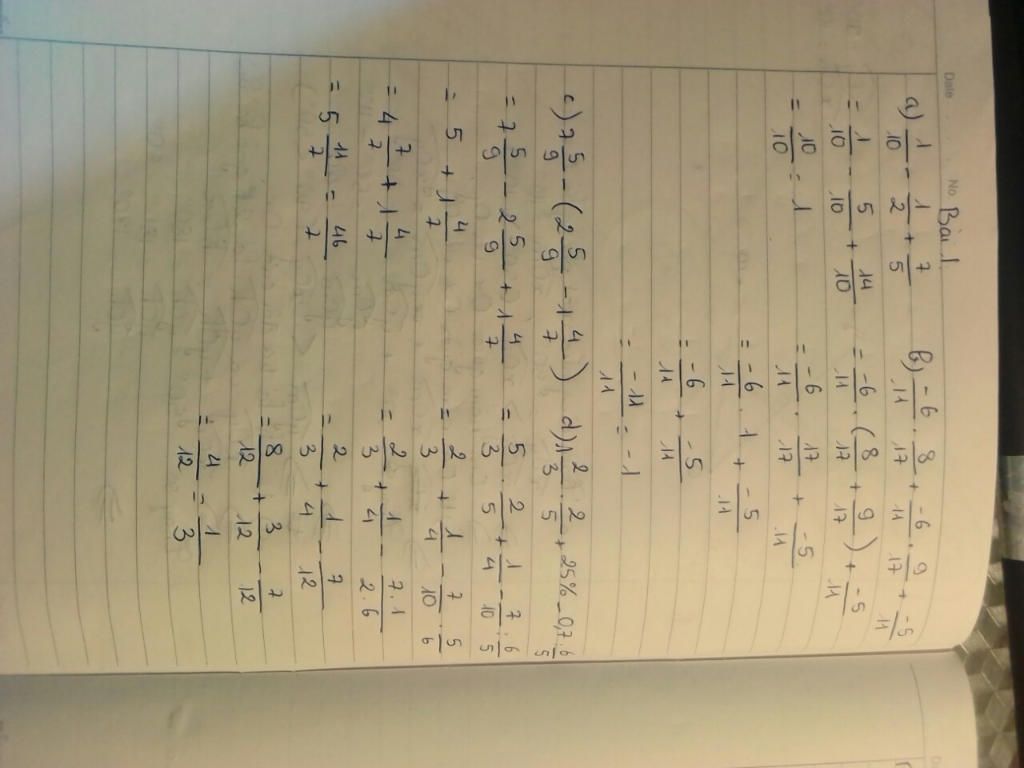 Date No
Bài 1.
a) 1/10 - 1/2 + 7/5
= 1/10 - 5/10 + 14/10
= 10/10 = 1
b) -6/11 . 8/17 + -6/11 . 9/17 + -5/11
= -6/11 . (8/17 + 9/17) + -5/11
= -6/11 . 17/17 + -5/11
= -6/11 . 1 + -5/11
= -6/11 + -5/11
= -11/11 = -1
c) 7 5/9 - (2 5/9 - 1 4/7)
= 7 5/9 - 2 5/9 + 1 4/7
= 5 + 1 4/7
= 4 7/7 + 1 4/7
= 5 11/7 = 46/7
d) 1 2/3 . 2/5 + 25% - 0,7 : 6/5
= 5/3 . 2/5 + 1/4 - 7/10 : 6/5
= 2/3 + 1/4 - 7/10 . 5/6
= 2/3 + 1/4 - 7.1/2.6
= 2/3 + 1/4 - 7/12
= 8/12 + 3/12 - 7/12
= 4/12 = 1/3